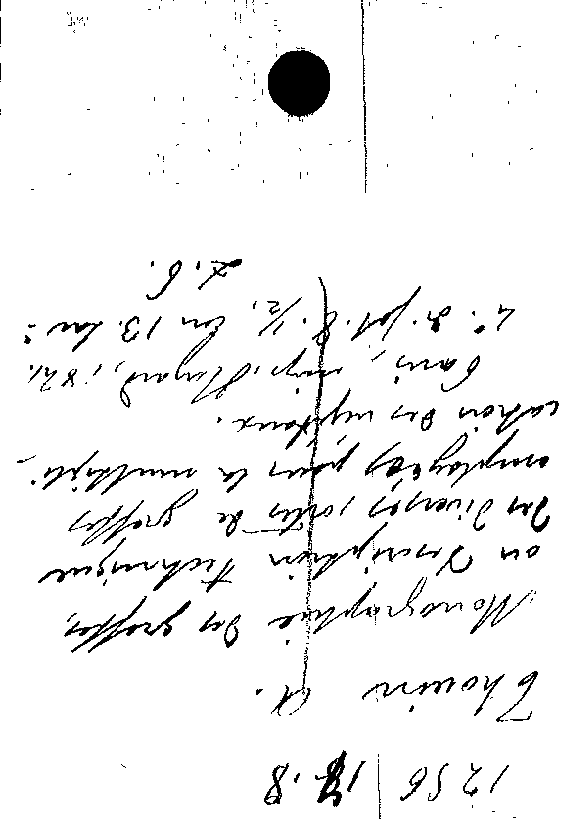 1256 | 18.8
Thouin A.
Monographie des greffes,
ou Description technique
des diverses sortes de greffes
employées pour la multipli-
cation des végétaux.
Paris, imp. Huzard, 1821.
4°. d. fol. 8. 1/2.